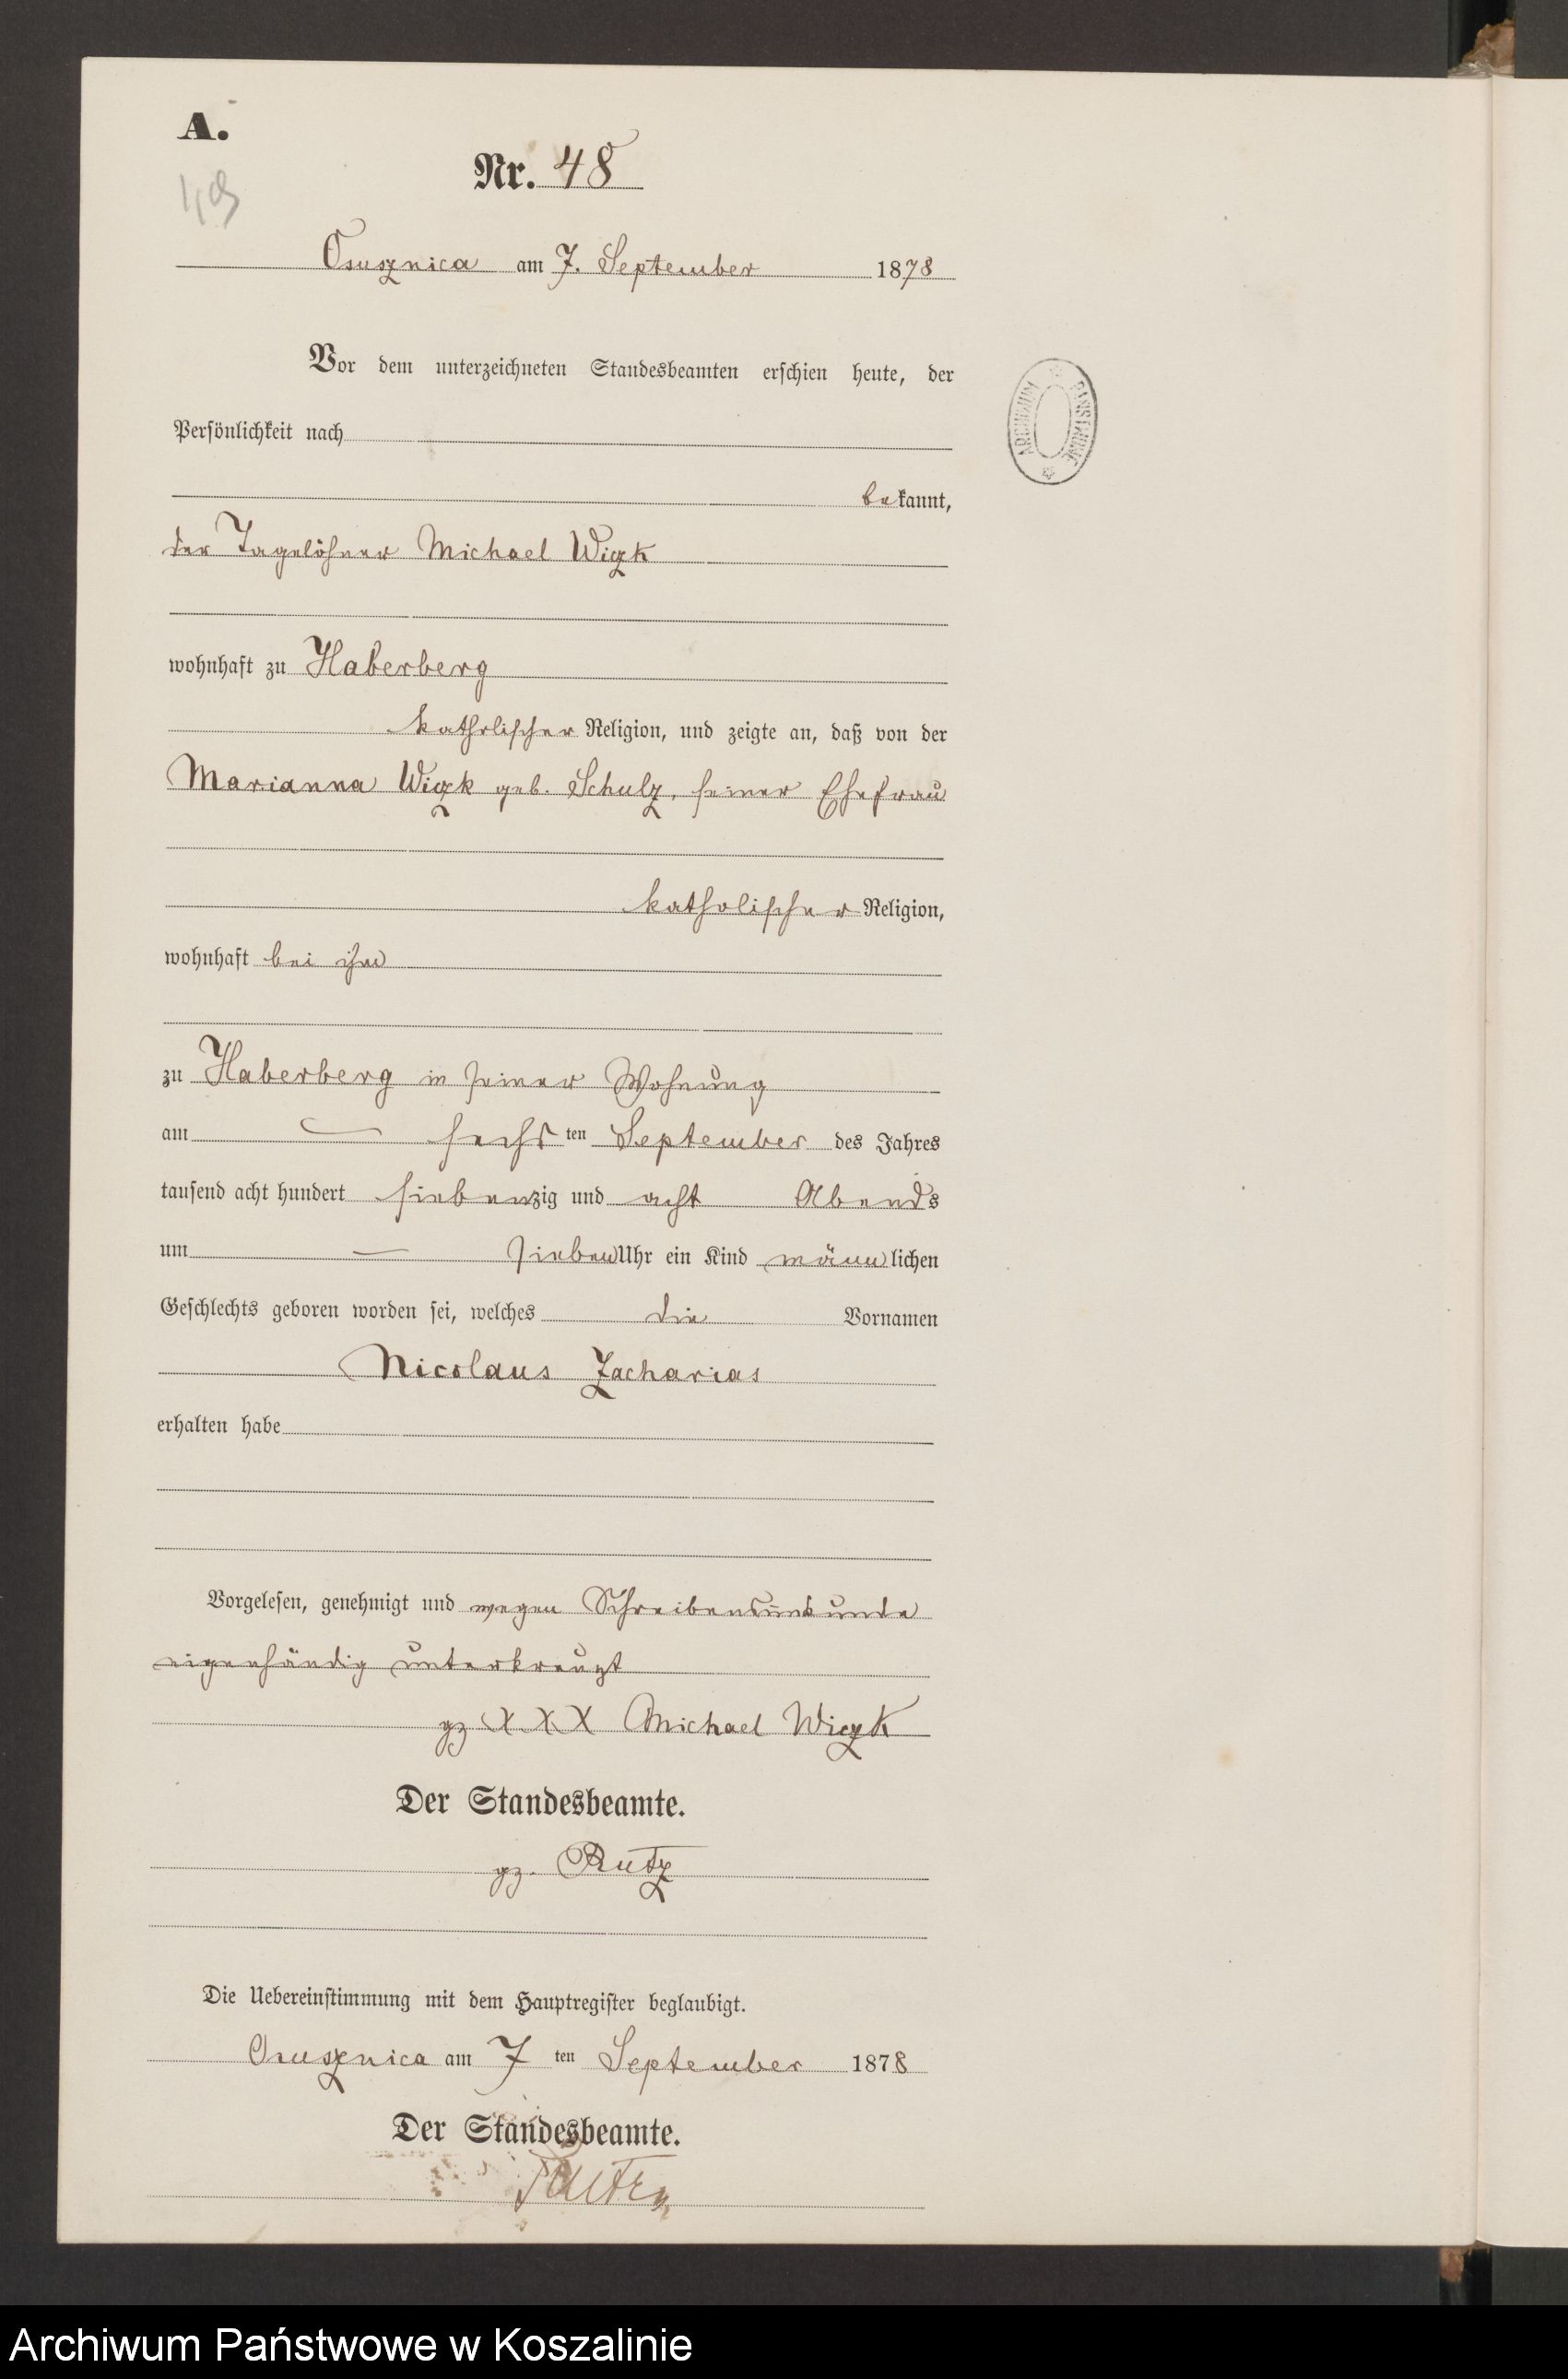 A.
Nr. 48
49
Osusznica am 7. September 1878
Vor dem unterzeichneten Standesbeamten erschien heute, der
Persönlichkeit nach
bekannt,
der Tagelöhner Michael Wiczk
wohnhaft zu Haberberg
katholischer Religion, und zeigte an, daß von der
Marianna Wiczk geb. Schulz, seiner Ehefrau
katholischer Religion,
wohnhaft bei ihm
zu Haberberg in seiner Wohnung
am sechsten September des Jahres
tausend acht hundert siebenzig und acht Abends
um sieben Uhr ein Kind männlichen
Geschlechts geboren worden sei, welches die Vornamen
Nicolaus Zacharias
erhalten habe
Vorgelesen, genehmigt und wegen Schreibensunkunde
eigenhändig unterkreuzt
gz X X X Michael Wiczk
Der Standesbeamte.
gz. Rutz
Die Uebereinstimmung mit dem Hauptregister beglaubigt.
Osusznica am 7 ten September 1878
Der Standesbeamte.
ARCHIWUM PAŃSTWOWE
Archiwum Państwowe w Koszalinie